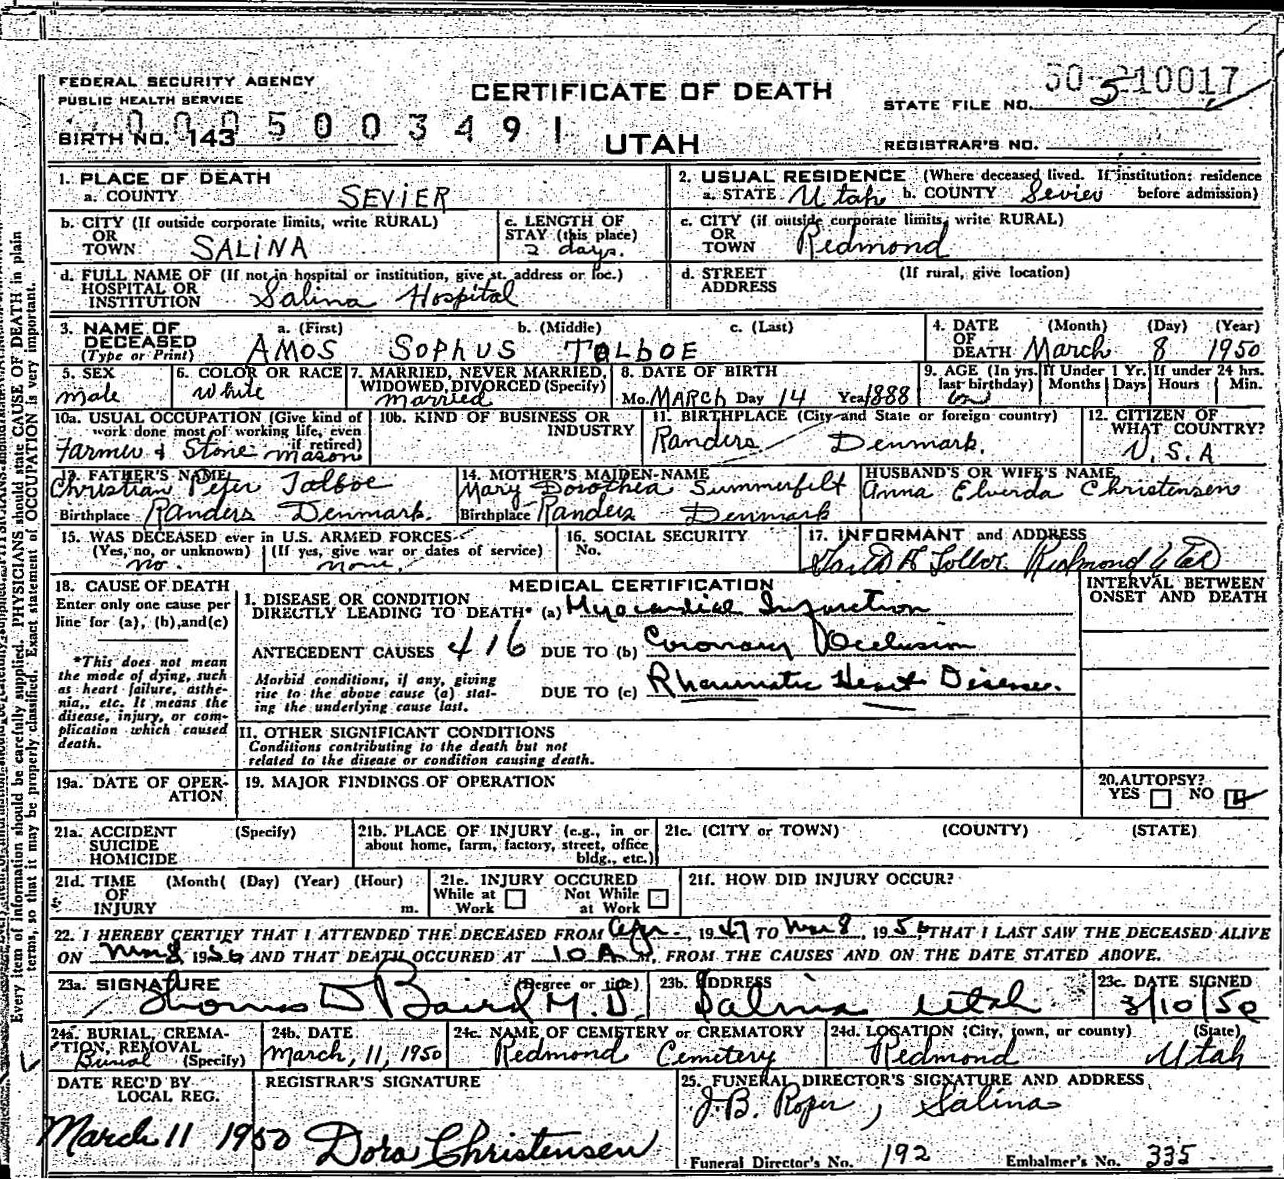 FEDERAL SECURITY AGENCY
PUBLIC HEALTH SERVICE
CERTIFICATE OF DEATH
STATE FILE NO. 50-5 210017
0005003491
BIRTH NO. 143
UTAH
REGISTRAR'S NO.
1. PLACE OF DEATH
a. COUNTY SEVIER
2. USUAL RESIDENCE (Where deceased lived. If institution: residence before admission)
a. STATE Utah b. COUNTY Sevier
b. CITY (If outside corporate limits, write RURAL)
OR
TOWN SALINA
c. LENGTH OF
STAY (this place)
2 days.
c. CITY (if outside corporate limits, write RURAL)
OR
TOWN Redmond
d. FULL NAME OF (If not in hospital or institution, give st. address or loc.)
HOSPITAL OR
INSTITUTION Salina Hospital
d. STREET (If rural, give location)
ADDRESS
3. NAME OF a. (First) b. (Middle) c. (Last)
DECEASED
(Type or Print) AMOS SOPHUS TALBOE
4. DATE (Month) (Day) (Year)
OF
DEATH March 8 1950
5. SEX
male
6. COLOR OR RACE
white
7. MARRIED, NEVER MARRIED,
WIDOWED, DIVORCED (Specify)
married
8. DATE OF BIRTH
Mo. MARCH Day 14 Year 1888
9. AGE (In yrs. last birthday)
If Under 1 Yr. Months Days
If under 24 hrs. Hours Min.
10a. USUAL OCCUPATION (Give kind of
work done most of working life, even
if retired)
Farmer & Stone mason
10b. KIND OF BUSINESS OR
INDUSTRY
11. BIRTHPLACE (City and State or foreign country)
Randers Denmark.
12. CITIZEN OF
WHAT COUNTRY?
U.S.A
13. FATHER'S NAME
Christian Peter Talboe
Birthplace Randers Denmark.
14. MOTHER'S MAIDEN NAME
Mary Dorothea Summerfilt
Birthplace Randers Denmark
HUSBAND'S OR WIFE'S NAME
Anna Elverda Christensen
15. WAS DECEASED ever in U.S. ARMED FORCES
(Yes, no, or unknown) (If yes, give war or dates of service)
no. none.
16. SOCIAL SECURITY
No.
17. INFORMANT and ADDRESS
Redmond Utah
18. CAUSE OF DEATH
Enter only one cause per
line for (a), (b), and (c)
*This does not mean
the mode of dying, such
as heart failure, asthe-
nia,, etc. It means the
disease, injury, or com-
plication which caused
death.
MEDICAL CERTIFICATION
INTERVAL BETWEEN
ONSET AND DEATH
I. DISEASE OR CONDITION
DIRECTLY LEADING TO DEATH* (a) Myocardial Infarction
ANTECEDENT CAUSES 416 DUE TO (b) Coronary Occlusion
Morbid conditions, if any, giving
rise to the above cause (a) stat-
ing the underlying cause last.
DUE TO (c) Rheumatic Heart Disease.
II. OTHER SIGNIFICANT CONDITIONS
Conditions contributing to the death but not
related to the disease or condition causing death.
19a. DATE OF OPER-
ATION
19. MAJOR FINDINGS OF OPERATION
20. AUTOPSY?
YES NO
21a. ACCIDENT (Specify)
SUICIDE
HOMICIDE
21b. PLACE OF INJURY (e.g., in or
about home, farm, factory, street, office
bldg., etc.)
21c. (CITY or TOWN) (COUNTY) (STATE)
21d. TIME (Month( (Day) (Year) (Hour)
OF
INJURY m.
21e. INJURY OCCURED
While at Work Not While at Work
21f. HOW DID INJURY OCCUR?
22. I HEREBY CERTIFY THAT I ATTENDED THE DECEASED FROM Apr., 1947 TO Mar 8, 1950, THAT I LAST SAW THE DECEASED ALIVE
ON Mar 8 1950 AND THAT DEATH OCCURED AT 10 A M, FROM THE CAUSES AND ON THE DATE STATED ABOVE.
23a. SIGNATURE (Degree or title)
Thomas D Baird M.D.
23b. ADDRESS
Salina Utah
23c. DATE SIGNED
3/10/50
24a. BURIAL, CREMA-
TION, REMOVAL
Burial (Specify)
24b. DATE
March, 11, 1950
24c. NAME OF CEMETERY or CREMATORY
Redmond Cemetery
24d. LOCATION (City, town, or county) (State)
Redmond Utah
DATE REC'D BY
LOCAL REG.
March 11 1950
REGISTRAR'S SIGNATURE
Dora Christensen
25. FUNERAL DIRECTOR'S SIGNATURE AND ADDRESS
J.B. Roper, Salina
Funeral Director's No. 192 Embalmer's No. 335
Every item of information should be carefully supplied. PHYSICIANS should state CAUSE OF DEATH in plain
terms, so that it may be properly classified. Exact statement of OCCUPATION is very important.